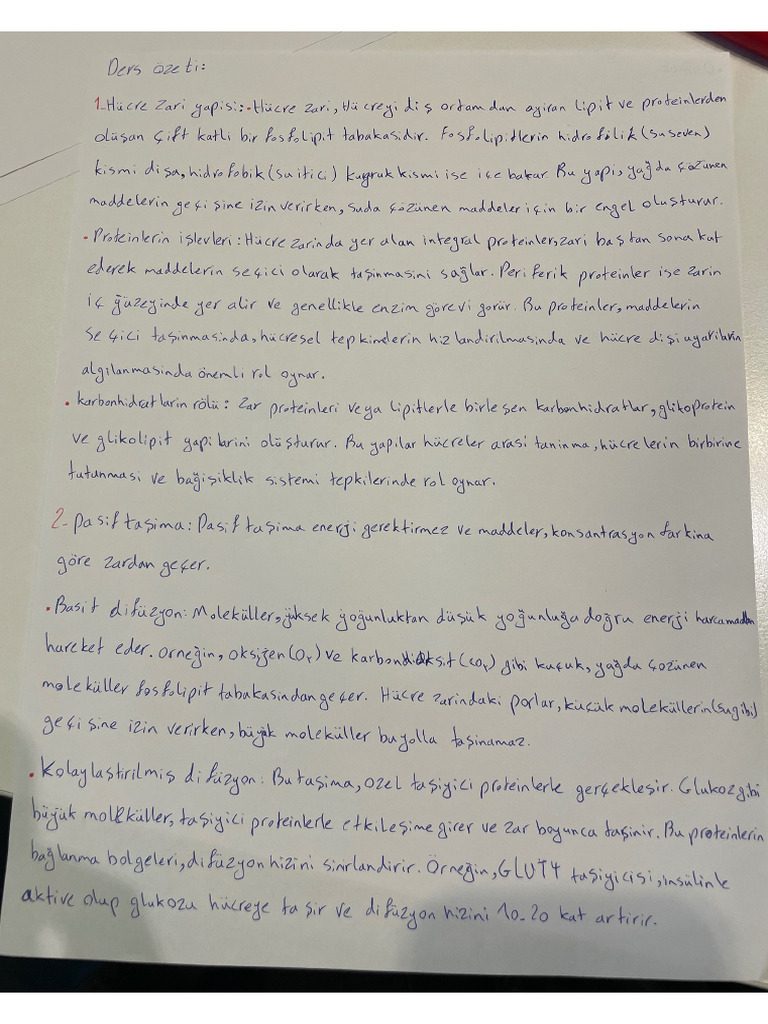 Ders özeti:
1-Hücre zari yapisi:•Hücre zari, Hücreyi diş ortamdan ayiran lipit ve proteinlerden
oluşan çift katli bir fosfolipit tabakasidir. Fosfolipitlerin hidrofilik (su seven)
kismi dişa, hidrofobik (su itici) kuyruk kismi ise içe bakar. Bu yapi, yağda çözünen
maddelerin geçişine izin verirken, suda çözünen maddeler için bir engel oluşturur.
• Proteinlerin işlevleri: Hücre zarinda yer alan integral proteinler, zari baştan sona kat
ederek maddelerin seçici olarak taşinmasini sağlar. Periferik proteinler ise zarin
iç yüzeyinde yer alir ve genellikle enzim görevi görür. Bu proteinler, maddelerin
seçici taşinmasinda, hücresel tepkimelerin hizlandirilmasinda ve hücre dişi uyarilarin
algilanmasinda önemli rol oynar.
• Karbonhidratlarin rölü: Zar proteinleri veya lipitlerle birleşen karbonhidratlar, glikoprotein
ve glikolipit yapilarini oluşturur. Bu yapilar hücreler arasi taninma, hücrelerin birbirine
tutunmasi ve bağişiklik sistemi tepkilerinde rol oynar.
2- Pasif taşima: Pasif taşima enerji gerektirmez ve maddeler, konsantrasyon farkina
göre zardan geçer.
• Basit difüzyon: Moleküller, yüksek yoğunluktan düşük yoğunluğa doğru enerji harcamadan
hareket eder. Örneğin, oksijen (O₂) ve karbondioksit (CO₂) gibi küçük, yağda çözünen
moleküller fosfolipit tabakasindan geçer. Hücre zarindaki porlar, küçük moleküllerin (su gibi)
geçişine izin verirken, büyük moleküller bu yolla taşinamaz.
• Kolaylaştirilmiş difüzyon: Bu taşima, özel taşiyici proteinlerle gerçekleşir. Glukoz gibi
büyük moleküller, taşiyici proteinlerle etkileşime girer ve zar boyunca taşinir. Bu proteinlerin
bağlanma bölgeleri, difüzyon hizini sinirlandirir. Örneğin, GLUT4 taşiyicisi, insülinle
aktive olup glukozu hücreye taşir ve difüzyon hizini 10-20 kat artirir.